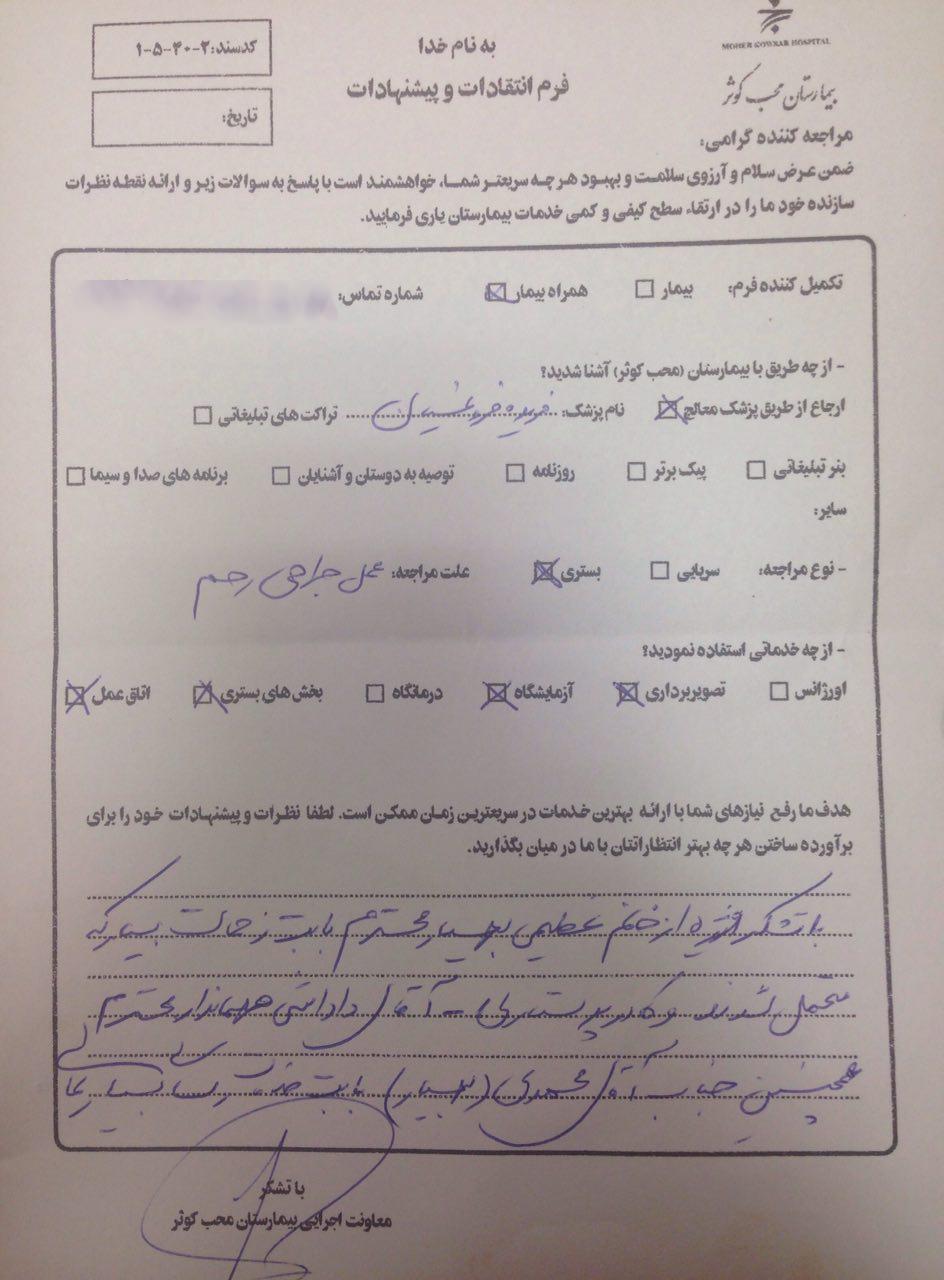 MOHEB KOWSAR HOSPITAL
بیمارستان محب کوثر
به نام خدا
فرم انتقادات و پیشنهادات
کدسند: ۲-۴۰-۵-۱
تاریخ:
مراجعه کننده گرامی:
ضمن عرض سلام و آرزوی سلامت و بهبود هر چه سریعتر شما، خواهشمند است با پاسخ به سوالات زیر و ارائه نقطه نظرات
سازنده خود ما را در ارتقاء سطح کیفی و کمی خدمات بیمارستان یاری فرمایید.
تکمیل کننده فرم: بیمار همراه بیمار شماره تماس:
- از چه طریق با بیمارستان (محب کوثر) آشنا شدید؟
ارجاع از طریق پزشک معالج نام پزشک: فریده تراکت های تبلیغاتی
بنر تبلیغاتی پیک برتر روزنامه توصیه به دوستان و آشنایان برنامه های صدا و سیما
سایر:
- نوع مراجعه: سرپایی بستری علت مراجعه: عمل جراحی رحم
- از چه خدماتی استفاده نمودید؟
اورژانس تصویربرداری آزمایشگاه درمانگاه بخش های بستری اتاق عمل
هدف ما رفع نیازهای شما با ارائه بهترین خدمات در سریعترین زمان ممکن است. لطفا نظرات و پیشنهادات خود را برای
برآورده ساختن هر چه بهتر انتظاراتتان با ما در میان بگذارید.
با تشکر از خانم عظیمی بهیار محترم بابت زحمات بسیار که
متحمل شدند و کادر پرستاری - آقای داداشی مهماندار محترم
همچنین جناب آقای محمدی (بهیار) بابت
با تشکر
معاونت اجرایی بیمارستان محب کوثر